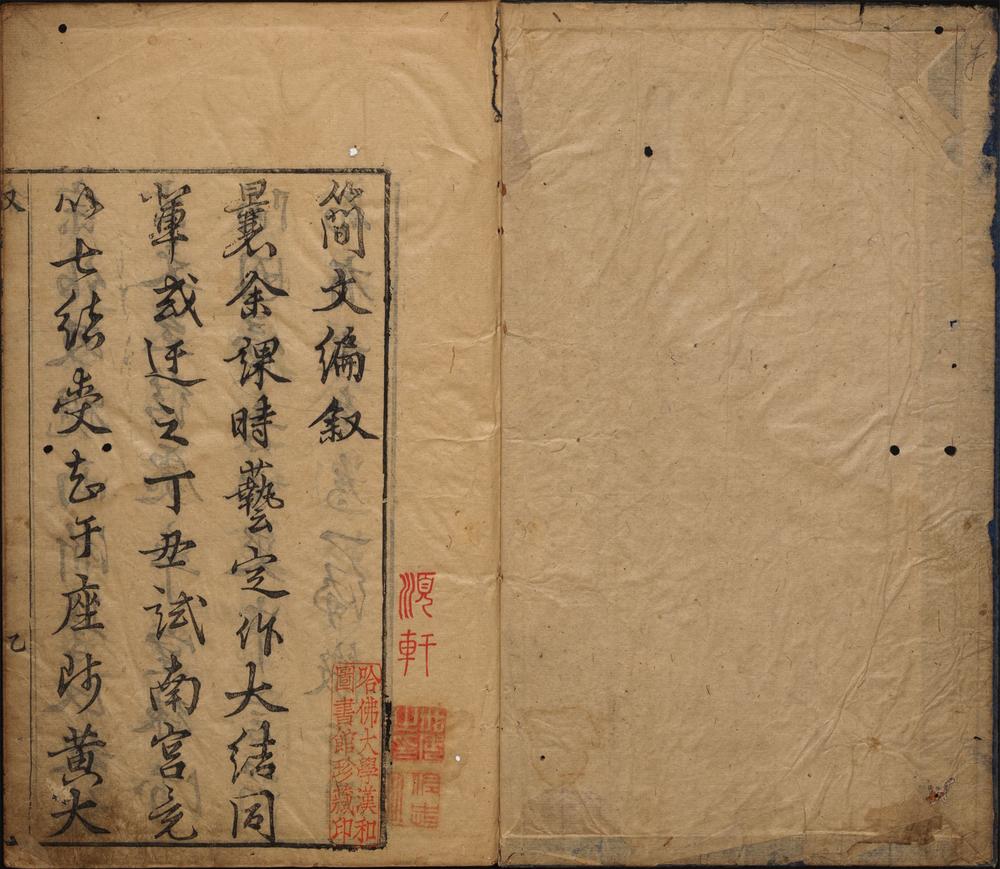 簡文編叙
曩余課時藝定作大結同
軰或迂之丁丑試南宮竟
以七結受知于座師黄大
湏軒
哈佛大學漢和
圖書館珍藏印